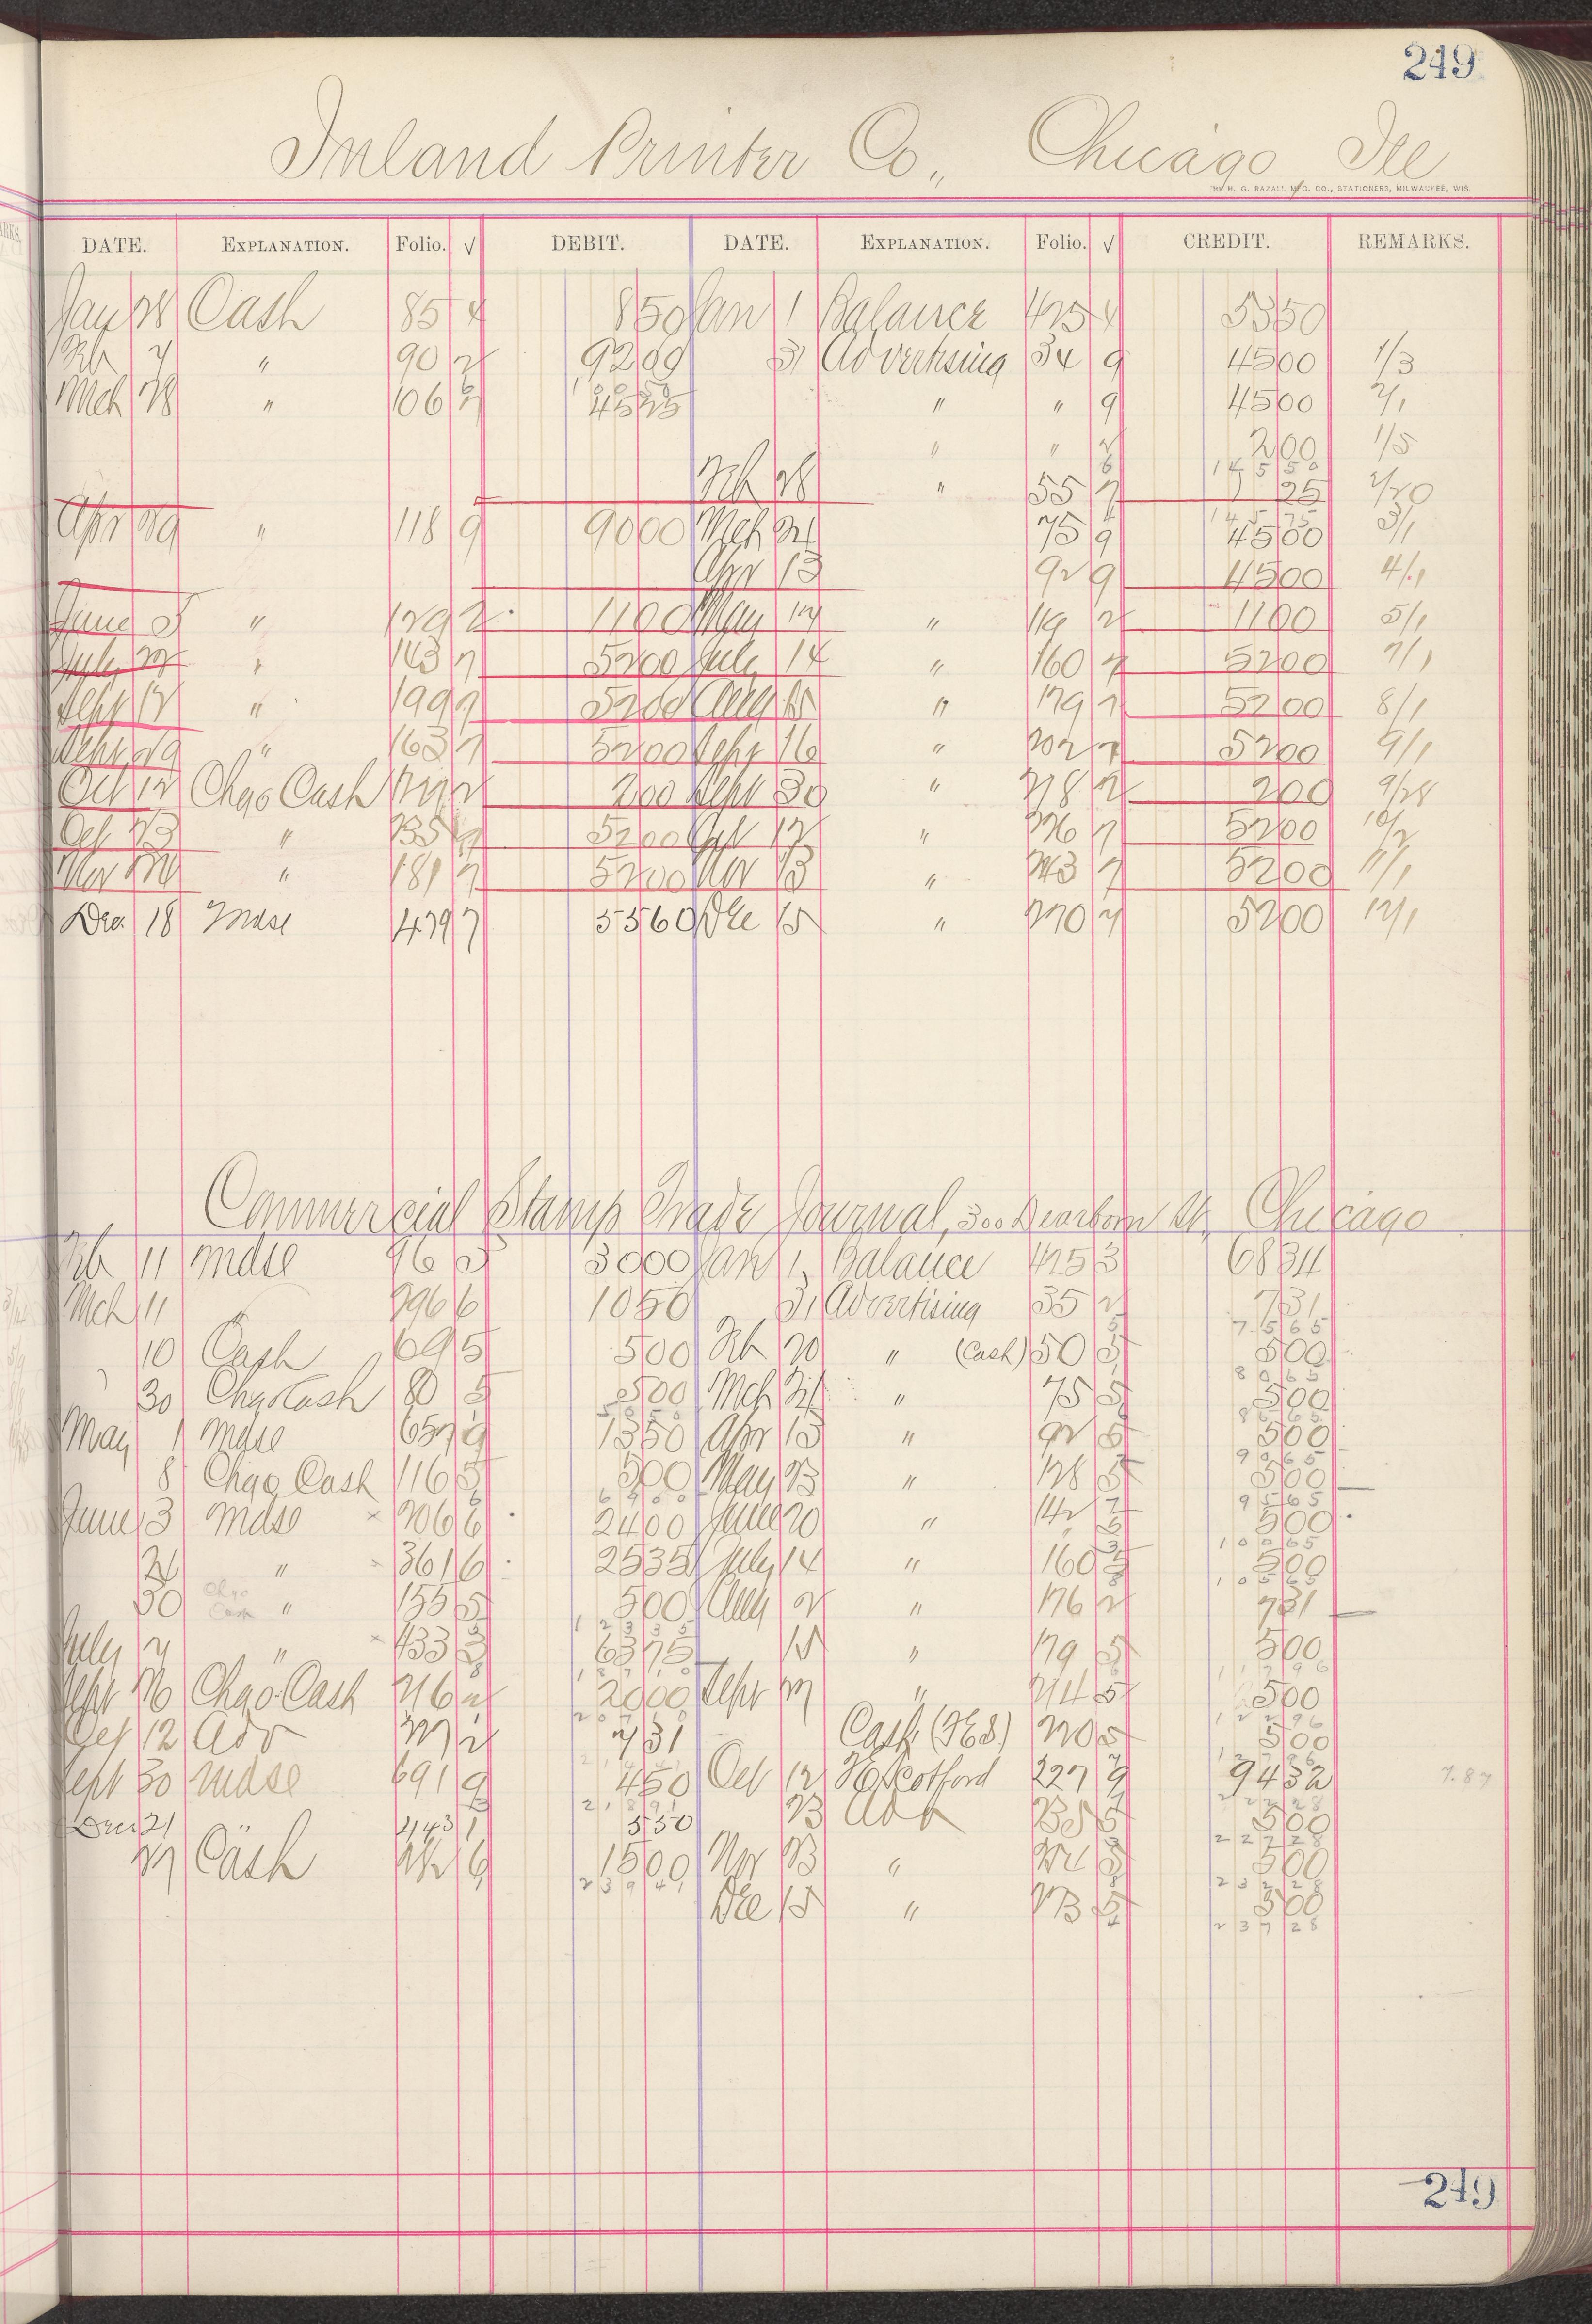 249
Inland Printer Co., Chicago Ill
THE H. G. RAZALL MFG. CO., STATIONERS, MILWAUKEE, WIS.
DATE. EXPLANATION. Folio. √ DEBIT. DATE. EXPLANATION. Folio. √ CREDIT. REMARKS.
Jan 28 Cash 85 4 850 Jan 1 Balance 425 4 5350
Feb 7 " 90 2 9200 31 Advertising 34 9 4500 1/3
Mch 28 " 106 4525 " " 9 4500 2/1
" " 2 200 1/5
14550
Feb 28 " 55 7 25 2/20
14575
Apr 29 " 118 9 9000 Mch 24 75 9 4500 3/1
Apr 13 92 9 4500 4/1
June 5 " 129 2 1100 May 14 " 119 2 1100 5/1
July 22 " 143 7 5200 July 14 " 160 7 5200 7/1
Sept 12 " 199 7 5200 Aug 15 " 179 7 5200 8/1
Sept 29 " 163 7 5200 Sept 16 " 202 7 5200 9/1
Oct 12 Chgo Cash 2 200 Sept 30 " 218 2 200 9/28
Oct 23 " 235 7 5200 Oct 12 " 226 7 5200 10/2
Nov " 181 7 5200 Nov 13 " 243 7 5200 11/1
Dec. 18 Mdse 479 7 5560 Dec 15 " 270 7 5200 12/1
Commercial Stamp Trade Journal, 300 Dearborn St, Chicago
Feb 11 Mdse 96 3 3000 Jan 1 Balance 425 3 6834
Mch 11 296 6 1050 31 Advertising 35 2 731
7565
10 Cash 69 5 500 Feb 20 " (Cash) 50 5 500
8065
30 Chgo Cash 80 5 500 Mch 24 " 75 5 500
8565
May 1 Mdse 657 9 1350 Apr 13 " 92 5 500
9065
8 Chgo Cash 116 5 500 May 23 " 128 5 500
9565
June 3 Mdse × 206 6 2400 June 20 " 142 5 500
10065
" 361 6 2535 July 14 " 160 5 500
10565
30 Chgo Cash " 155 5 500 Aug 2 " 176 2 731
12335
July 7 " × 433 3 6375 15 " 179 5 500
11796
Sept 26 Chgo Cash 216 2 2000 Sept 27 " 214 5 500
12296
Oct 12 Adv 2 731 Cash (FES) 220 5 500
12796
Sept 30 Mdse 691 9 450 Oct 12 Scotford 227 9 9432 7.87
22228
Dec 21 " 443 1 550 23 Adv 235 5 500
22728
27 Cash 6 1500 Nov 23 " 5 500
23941 23228
Dec 15 " 273 5 500
23728
249